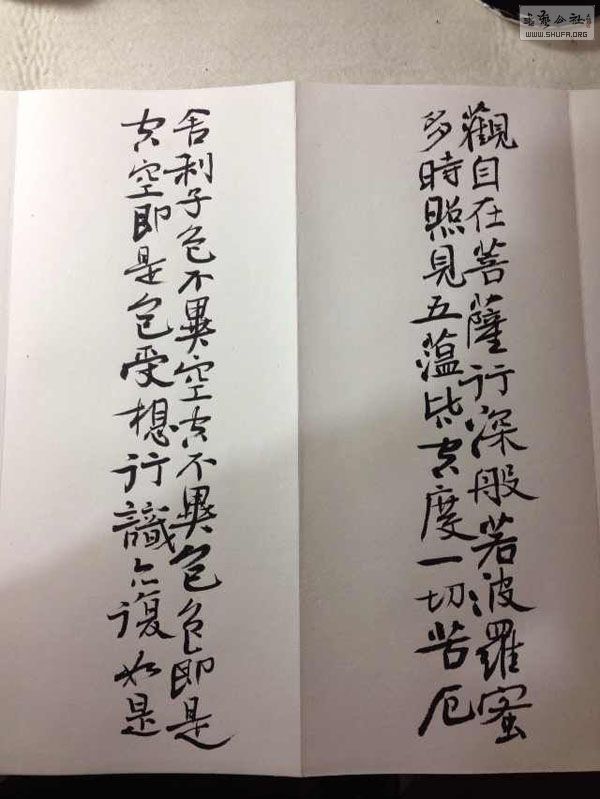 觀自在菩薩行深般若波羅蜜
多時照見五蘊皆空度一切苦厄
舍利子色不異空空不異色色即是
空空即是色受想行識亦復如是
書藝公社
WWW.SHUFA.ORG